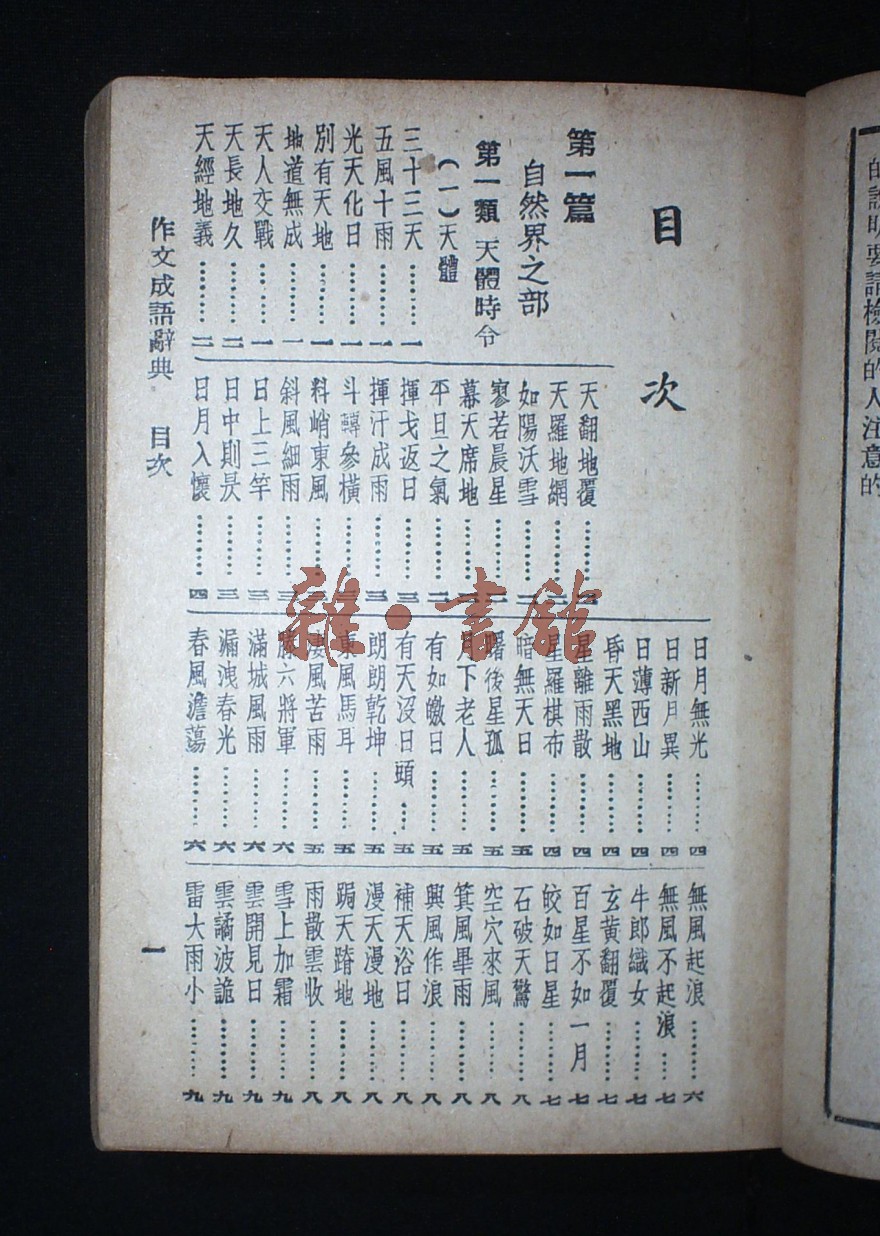 目次
第一篇
自然界之部
第一類 天體時令
(一)天體
三十三天…………一
五風十雨…………一
光天化日…………一
別有天地…………一
地道無成…………一
天人交戰…………一
天長地久…………二
天經地義…………二
天翻地覆…………二
天羅地網…………二
如陽沃雪…………二
寥若晨星…………二
幕天席地…………二
平旦之氣…………二
揮戈返日…………三
揮汗成雨…………三
斗轉參橫…………三
料峭東風…………三
斜風細雨…………三
日上三竿…………三
日中則昃…………三
日月入懷…………四
日月無光…………四
日新月異…………四
日薄西山…………四
昏天黑地…………四
星離雨散…………四
星羅棋布…………四
暗無天日…………五
曙後星孤…………五
月下老人…………五
有如皦日…………五
有天沒日頭……五
朗朗乾坤…………五
東風馬耳…………五
凄風苦雨…………五
滕六將軍…………六
滿城風雨…………六
漏洩春光…………六
春風澹蕩…………六
無風起浪…………六
無風不起浪……七
牛郎織女…………七
玄黃翻覆…………七
百星不如一月……七
皎如日星…………七
石破天驚…………八
空穴來風…………八
箕風畢雨…………八
興風作浪…………八
補天浴日…………八
漫天漫地…………八
跼天蹐地…………八
雨散雲收…………八
雪上加霜…………九
雲開見日…………九
雲譎波詭…………九
雷大雨小…………九
作文成語辭典 目次
一
的說明要請檢閱的人注意的
雜·書館